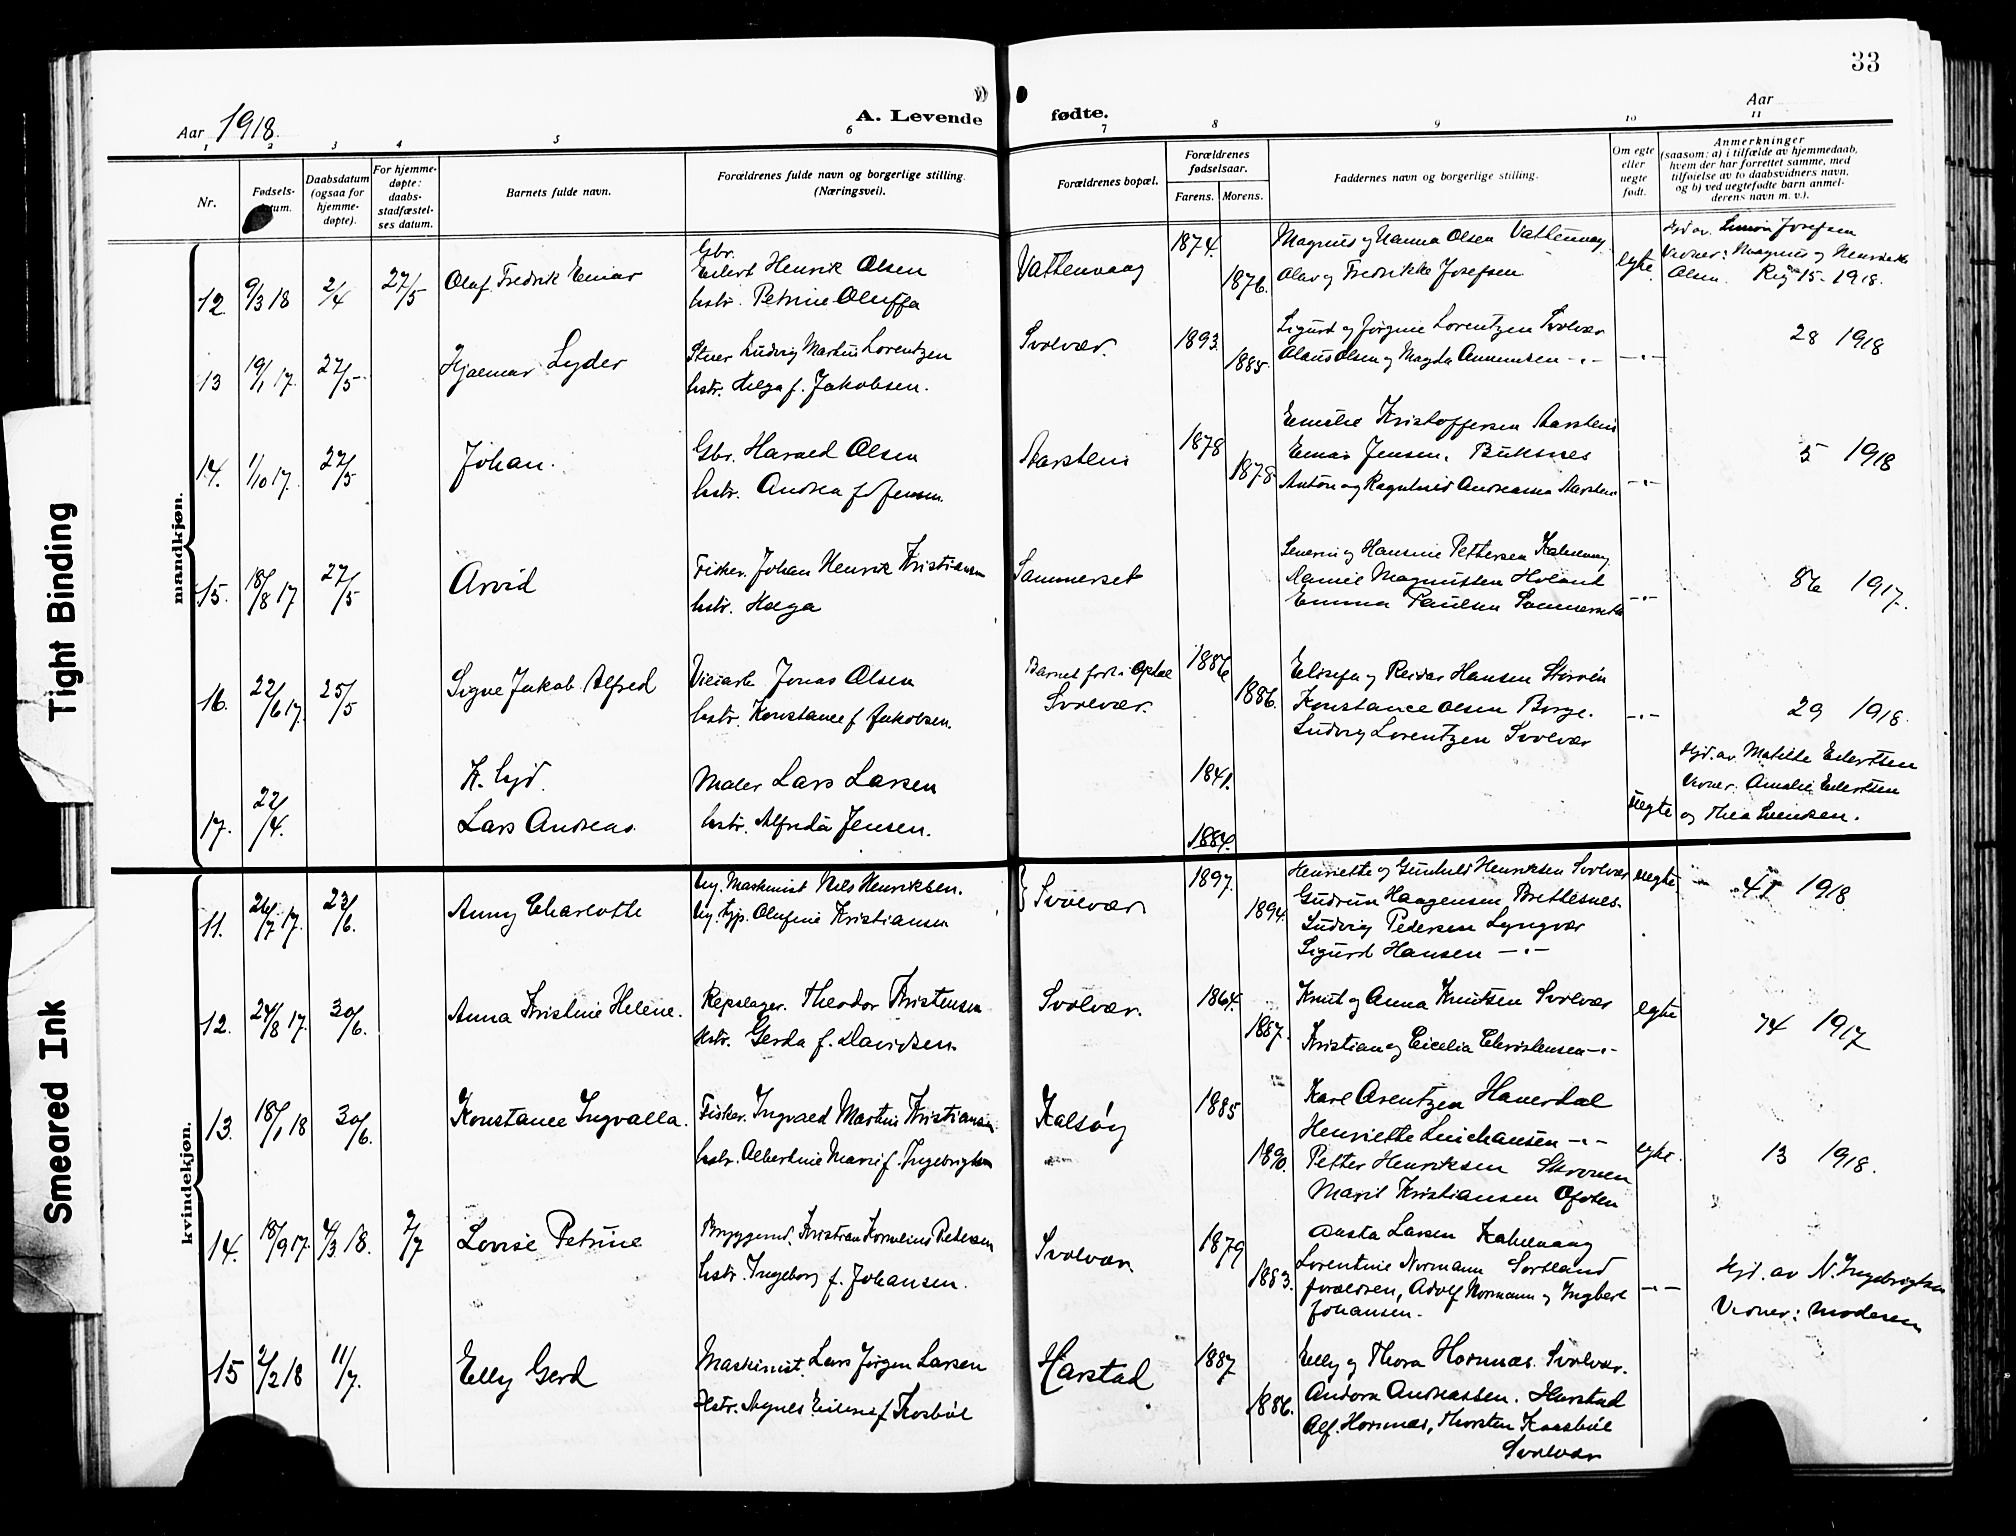 33
Aar 1918.
A. Levende fødte.
Aar
1 2 3 4 5 6 7 8 9 10 11
Nr.
Fødsels-
Daabsdatum (ogsaa for hjemme-døpte).
For hjemme-døpte: daabs-stadfæstel-ses datum.
Barnets fulde navn.
Forældrenes fulde navn og borgerlige stilling. (Næringsvei).
Forældrenes bopæl.
Forældrenes fødselsaar.
Farens. Morens.
Faddernes navn og borgerlige stilling.
Om egte eller uegte født.
Anmerkninger
(saasom: a) i tilfælde av hjemmedaab, hvem der har forrettet samme, med tilføielse av to daabsvidners navn, og b) ved uegtefødte barn anmel-derens navn m. v.).
mandkjøn.
12. 9/3 18 2/4 27/5 Olaf Fredrik Einar
Gbr. Eilert Henrik Olsen
hstr. Petrine Oluffa
Vattenvaag 1874. 1876.
Magnus og Hanna Olsen Vattenvaag
Olav og Fredrikke Josefsen
egte
Hjd av. Simon Josefsen
Vidner: Magnus og Henrikke
Olsen. Reg 15 - 1918.
13 19/1 17. 27/5 Hjalmar Lyder
Stuer Ludvig Markus Lorentzen
hstr. Helga f. Jakobsen.
Svolvær. 1893. 1885.
Sigurd og Jørgine Lorentzen Svolvær
Olaus Olsen og Magda Amundsen -"-
-"- 28 1918
14. 1/10 17. 27/5 Johan.
Gbr. Harald Olsen
hstr. Andrea f. Jensen
Aarstein 1878 1878
Emilie Kristoffersen Aarstein
Einar Jensen, Buksnes
Anton og Ragnhild Andreassen Aarstein
-"- 5 1918
15. 18/8 17 27/5 Arvid
Fisker. Johan Henrik Kristiansen
hstr. Helga
Sommerset
Severin og Hansine Pettersen Kabelvaag
Magnussen
Emma Paulsen Sommerset
-"- 86 1917.
16. 22/6 17. 25/5 Signe Jakob Alfred
Jonas Olsen
hstr. Konstance f Jakobsen.
Barnet født i
Svolvær. 1886 1886.
Elisefa og Reidar Hansen
Konstance Olsen Borge.
Ludvig Lorentzen Svolvær
-"- 29 1918.
17. 22/4. Lars Andreas.
Maler Lars Larsen
hstr. Alfrida Jensen.
1841. 1884.
uegte
Hjd. av Matilde Eilertsen
Vidner. Amalie Eilertsen
og Thea Svendsen.
kvindekjøn.
11. 26/7 17. 23/6. Anny Charlotte
Ug. Maskinist Nils Henriksen.
Ug. tjp. Olufine Kristiansen
Svolvær 1897. 1894.
Henriette og Gunhild Henriksen Svolvær
Gudrun Haagensen Brettesnes.
Ludvig Pedersen Lyngvær
Sigurd Hansen -"-
uegte 41 1918.
12. 24/8 17. 30/6. Anna Kristine Helene.
Repslager. Theodor Kristensen
Hstr. Gerda f. Davidsen.
Svolvær. 1864. 1887.
Knut og Anna Knutsen Svolvær
Kristian og Cicelia Christensen -"-
egte 74 1917
13. 18/1 18 30/6. Konstance Ingvalla.
Fisker. Ingvald Martin Kristiansen
hstr. Albertine Marie f. Ingebrigtsen
Kalsøy 1885 1890.
Karl Arentzen Haverdal
Henriette -"-
Petter Henriksen Skroven
Marit Kristiansen Ofoten
egte. 13 1918.
14. 18/9 17. 4/3 18. 7/7 Lovise Petrine
Kristian Kornelius Pedersen
hstr. Ingeborg f. Johansen.
Svolvær. 1879 1883.
Aasta Larsen Kabelvaag
Lorentine Normann Sortland
forældren, Adolf Normann og
Johansen.
-"-
Hjd. av N. Ingebrigtsen
Vidner: moderen
15 2/2 18 11/7. Elly Gerd
Maskinist. Lars Jørgen Larsen
Hstr. Agnes f. Kosbøl
Harstad 1887 1886.
Elly og Thora Hornnæs. Svolvær.
Andora Andreassen. Harstad
Alf. Hornnæs, Thorsten
Svolvær
Tight Binding
Smeared Ink